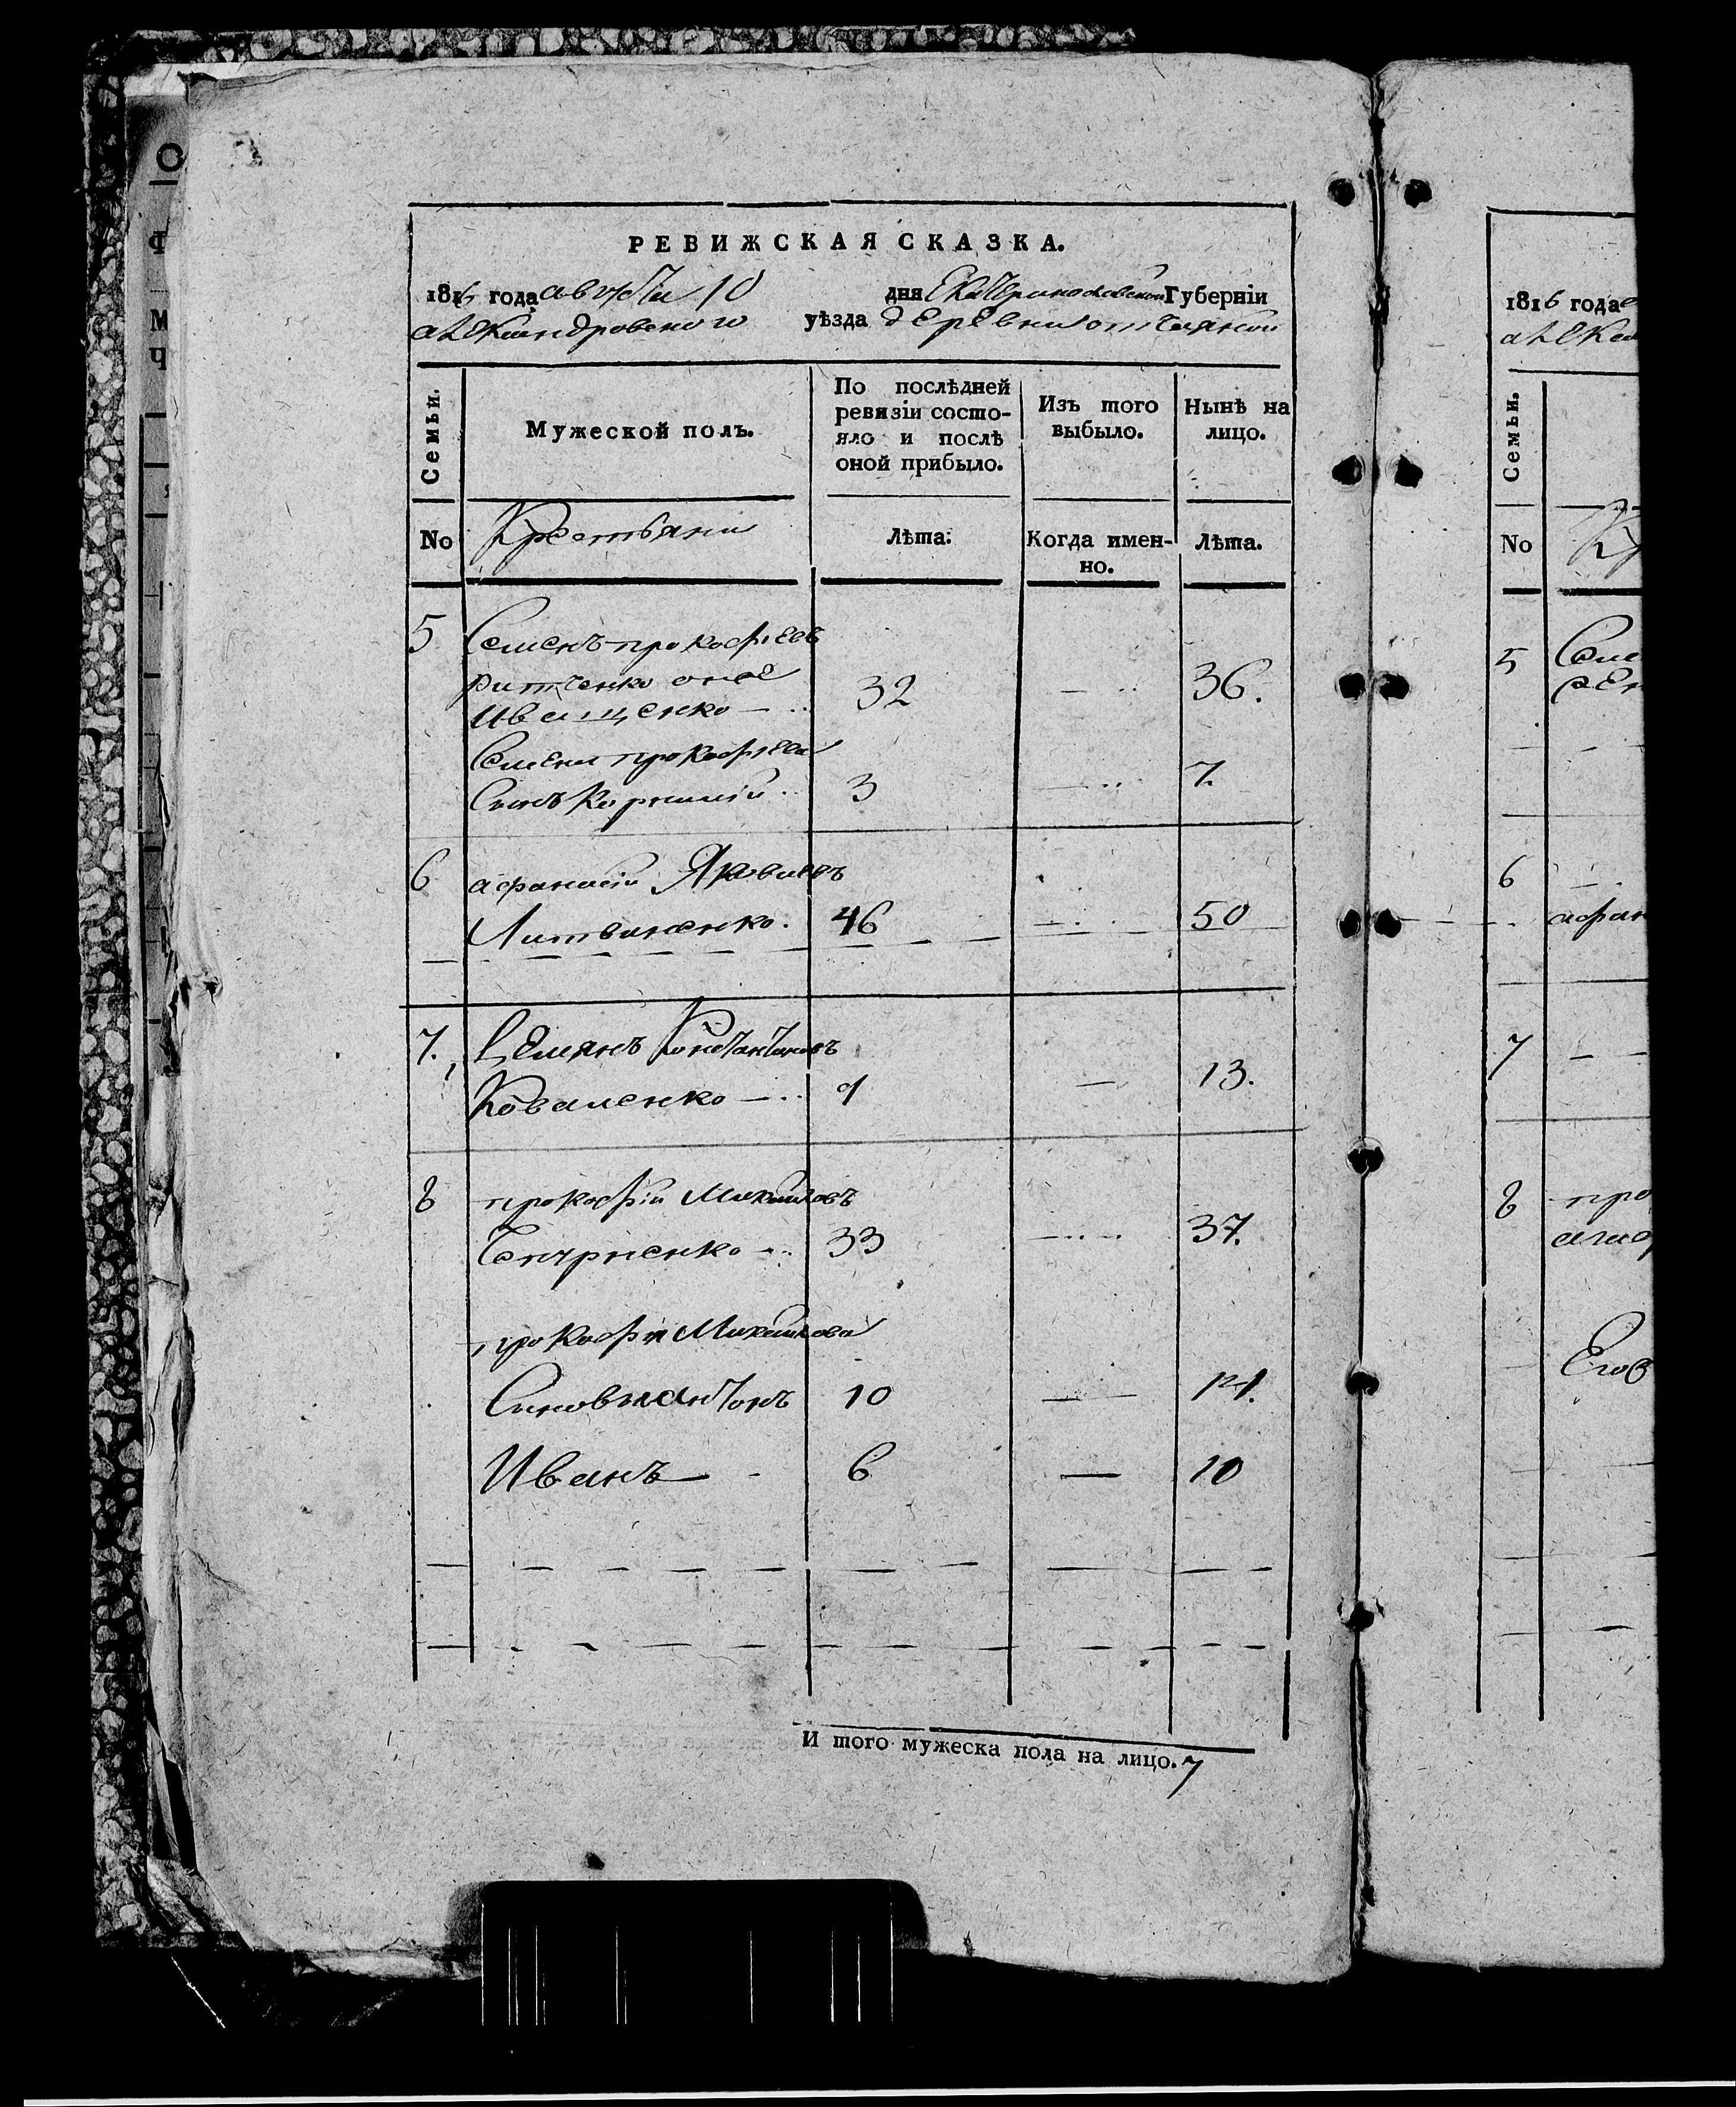 РЕВИЖСКАЯ СКАЗКА.
1816 года августа 10 дня Екатеринославской Губерніи
александровского уѣзда деревни отчаяной
Семьи. Мужеской полъ. По послѣдней ревизіи состояло и послѣ оной прибыло. Изъ того выбыло. Нынѣ на лицо.
No Крестьяни Лѣта: Когда именно. Лѣта.
5 Семенъ прокофіевъ
онъ же
Иващенко 32 36.
Семена прокофіева
Сынъ Корнилій 3 7.
6 афанасій Яковлевъ
Литвиненко. 46 50
7. Демянъ Константиновъ
Коваленко 9 13.
8 прокофій Михайловъ
33 37.
прокофія Михайлова
Сыновья антонъ 10 14.
Иванъ 6 10
И того мужеска пола на лицо. 7
1816 года
алек
Семьи.
No
5 Сем
6
афан
7
8 про
Его